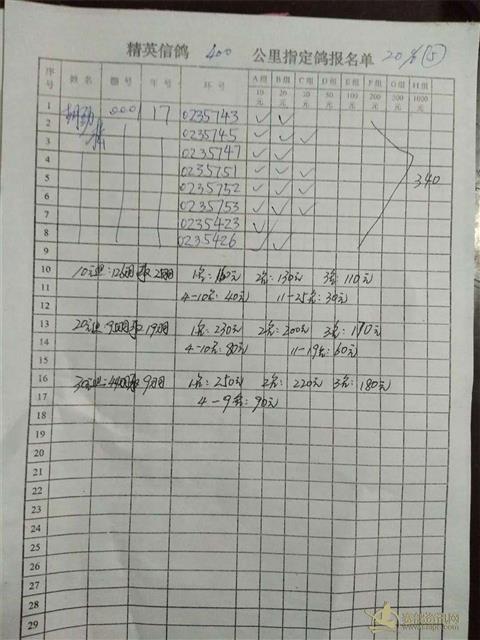 精英信鸽 400 公里指定鸽报名单 20% ⑤
序号 姓名 棚号 年号 环号 A组 B组 C组 D组 E组 F组 G组 H组
10元 20元 30元 50元 100元 200元 300元 1000元
1 0001 17 0235743 ✓ ✓
2 0235745 ✓ ✓ ✓
3 0235747 ✓ ✓
4 0235751 ✓ ✓ ✓
5 0235752 ✓ ✓ ✓ 340
6 0235753 ✓ ✓ ✓
7 0235423 ✓
8 0235426 ✓ ✓
9
10 10元组:126羽取25羽 1名:160元 2名:130元 3名:110元
11 4-10名:40元 11-25名:30元
12
13 20元组:90羽取19羽 1名:230元 2名:200元 3名:170元
14 4-10名:80元 11-19名:60元
15
16 30元组:44羽取9羽 1名:250元 2名:220元 3名:180元
17 4-9名:90元
18
19
20
21
22
23
24
25
26
27
28
29